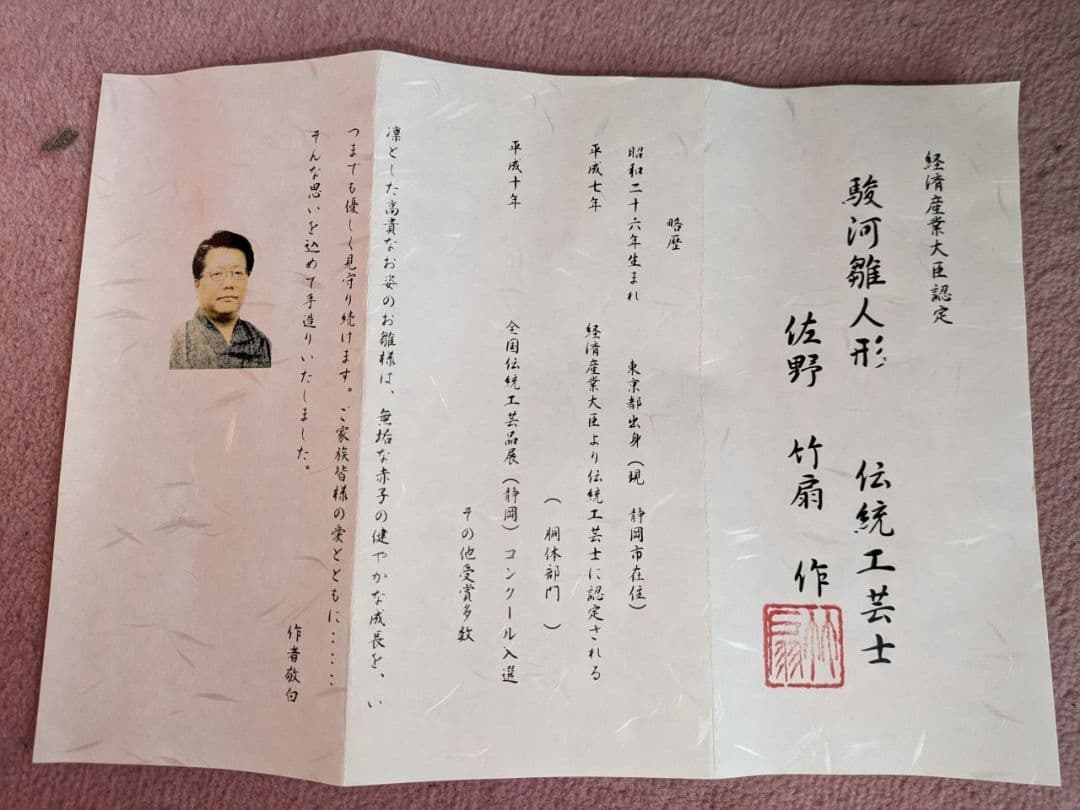 経済産業大臣認定
駿河雛人形 伝統工芸士
佐野 竹扇 作
竹扇
略歴
昭和二十六年生まれ 東京都出身(現 静岡市在住)
平成七年 経済産業大臣より伝統工芸士に認定される
(胴体部門)
平成十年 全国伝統工芸品展(静岡)コンクール入選
その他受賞多数
凛とした高貴なお姿のお雛様は、無垢な赤子の健やかな成長を、い
つまでも優しく見守り続けます。ご家族皆様の愛とともに・・・・
そんな思いを込めて手造りいたしました。
作者敬白